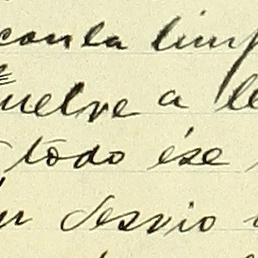 con la limp
uelve a le
todo ése
su desvio